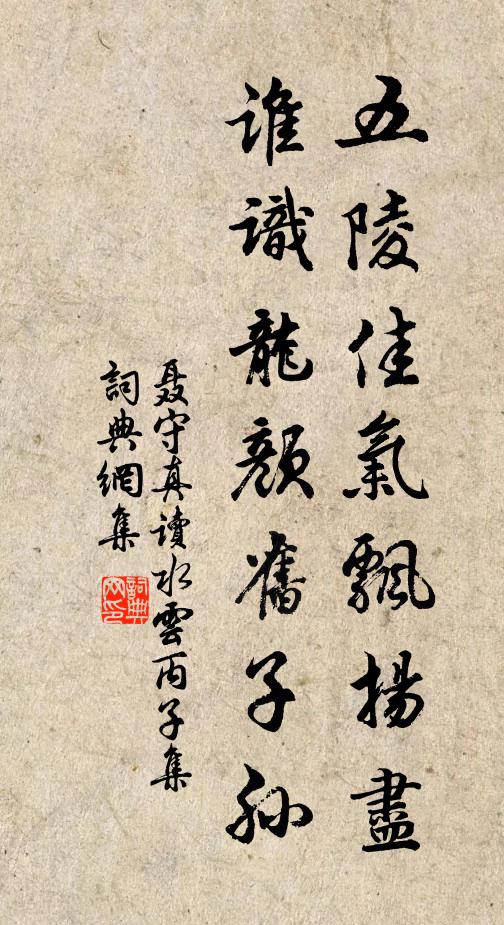 五陵佳氣飄揚盡
誰識龍顏舊子孫
聶守真讀水雲丙子集
詞典網集
詞典網印